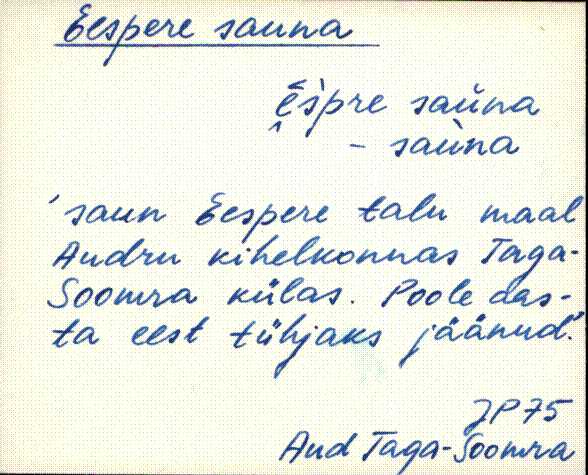 Eespere sauna
È̬s̀pre sauǹa
- sauǹa
'saun Eespere talu maal
Audru kihelkonnas Taga-
Soomra külas. Poole aas-
ta eest tühjaks jäänud.'
JP75
Aud Taga-Soomra